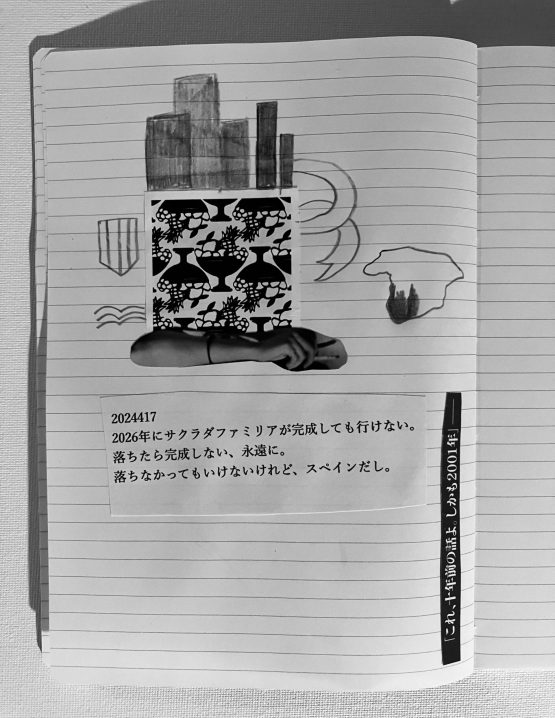 2024417
2026年にサクラダファミリアが完成しても行けない。
落ちたら完成しない、永遠に。
落ちなかってもいけないけれど、スペインだし。
「これ、十年前の話よ。しかも2001年」──